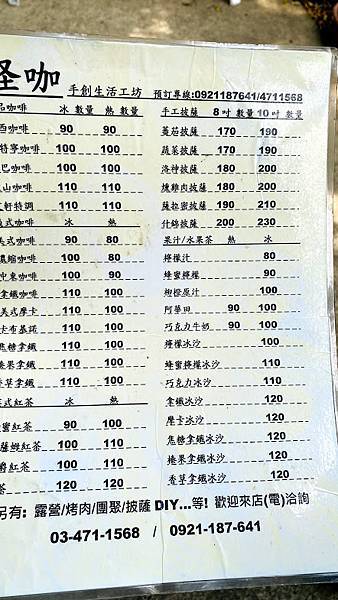 怪咖 手創生活工坊 預訂專線:0921187641/4711568
咖啡 冰 數量 熱 數量
西咖啡 90 90
特寧咖啡 100 100
巴咖啡 100 100
山咖啡 110 110
軒特調 110 110
式咖啡 冰 熱
美式咖啡 90 80
濃縮咖啡 100 80
中東咖啡 100 90
拿鐵咖啡 110 100
美式摩卡 110 100
卡布基諾 110 100
焦糖拿鐵 110 100
捲果拿鐵 110 100
香草拿鐵 110 100
式紅茶 冰 熱
蜜紅茶 90 100
薩姆紅茶 100 110
爵紅茶 100 110
茶 120 120
手工披薩 8吋 數量 10吋 數量
蕃茄披薩 170 190
蔬菜披薩 170 190
洛神披薩 180 200
燻雞肉披薩 180 200
薩拉蜜披薩 190 210
什錦披薩 200 230
果汁/水果茶 熱 冰
檸檬汁 80
蜂蜜檸檬 90
柳橙原汁 100
阿華田 90 100
巧克力牛奶 90 100
檸檬冰沙 100
蜂蜜檸檬冰沙 110
巧克力冰沙 110
拿鐵冰沙 120
摩卡冰沙 120
焦糖拿鐵冰沙 120
捲果拿鐵冰沙 120
香草拿鐵冰沙 120
另有: 露營/烤肉/團聚/披薩 DIY...等! 歡迎來店(電)洽詢
03-471-1568 / 0921-187-641